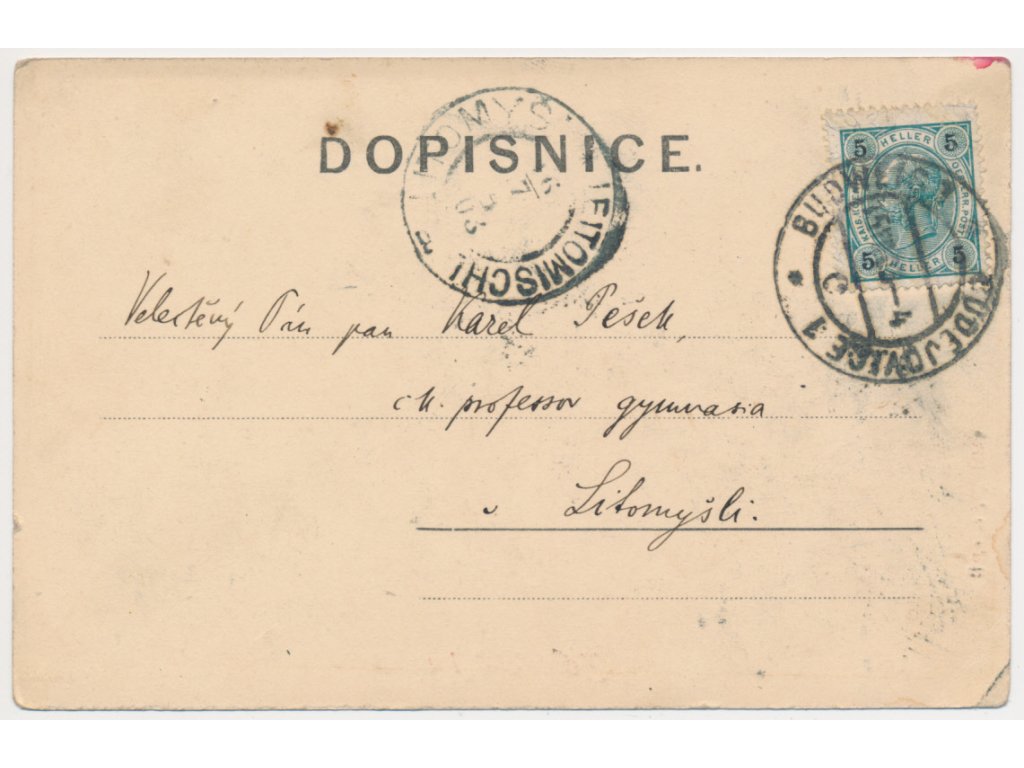 DOPISNICE.
LITOMYŠL LEITOMISCHL
6 7 03
5 HELLER 5
KAIS. KÖ OESTERR. POST
5 HELLER 5
BUDWEIS 1 BUDĚJOVICE 1
C
4
Velectěný Pán pan Karel Pešek,
c k. professor gymnasia
v Litomyšli.